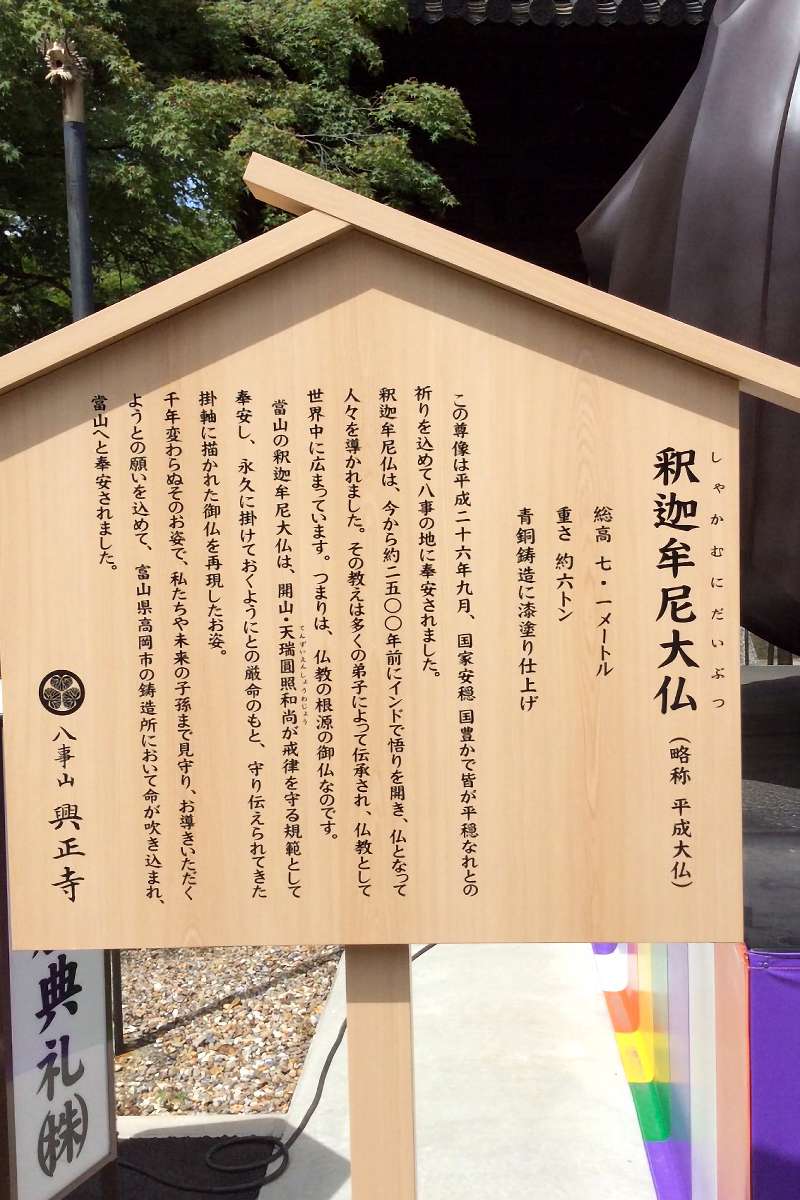 しゃかむにだいぶつ
釈迦牟尼大仏(略称 平成大仏)
総高 七・一メートル
重さ 約六トン
青銅鋳造に漆塗り仕上げ
この尊像は平成二十六年九月、国家安穏 国豊かで皆が平穏なれとの
祈りを込めて八事の地に奉安されました。
釈迦牟尼仏は、今から約二五〇〇年前にインドで悟りを開き、仏となって
人々を導かれました。その教えは多くの弟子によって伝承され、仏教として
世界中に広まっています。つまりは、仏教の根源の御仏なのです。
てんずいえんしょうわじょう
當山の釈迦牟尼大仏は、開山・天瑞圓照和尚が戒律を守る規範として
奉安し、永久に掛けておくようにとの厳命のもと、守り伝えられてきた
掛軸に描かれた御仏を再現したお姿。
千年変わらぬそのお姿で、私たちや未来の子孫まで見守り、お導きいただく
ようとの願いを込めて、富山県高岡市の鋳造所において命が吹き込まれ、
當山へと奉安されました。
八事山 興正寺
典礼㈱